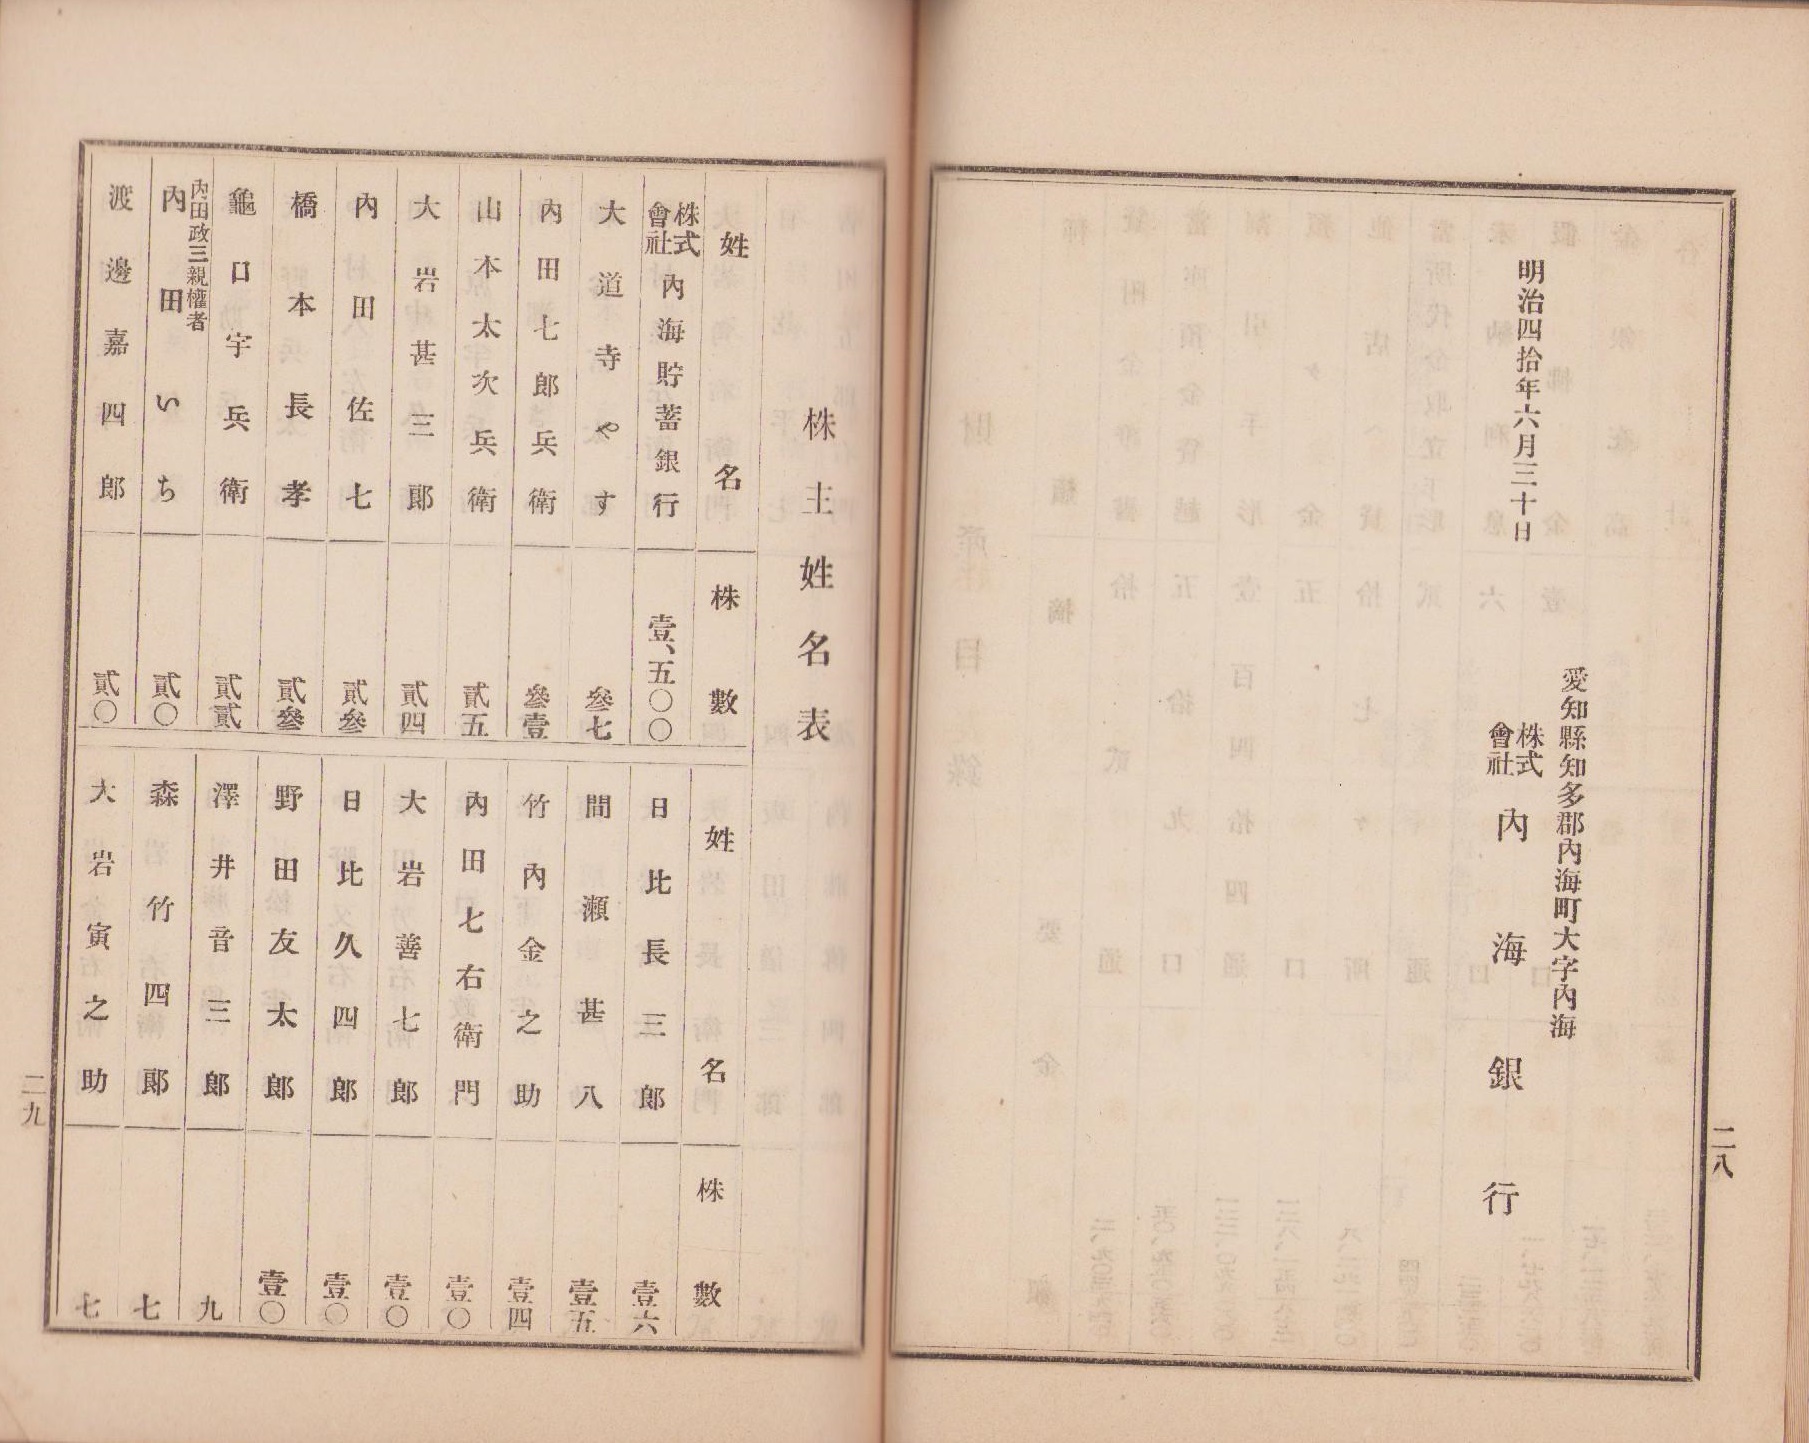 明治四拾年六月三十日
愛知縣知多郡內海町大字內海
株式會社 內海銀行
二八
株主姓名表
姓名 株數
株式會社 內海貯蓄銀行 壹、五〇〇
大道寺やす 參七
內田七郎兵衛 參壹
山本太次兵衛 貳五
大岩甚三郞 貳四
內田佐七 貳參
橋本長孝 貳參
龜口宇兵衛 貳貳
內田政三親權者 內田いち 貳〇
渡邊嘉四郎 貳〇
姓名 株數
日比長三郎 壹六
間瀨甚八 壹五
竹內金之助 壹四
內田七右衛門 壹〇
大岩善七郎 壹〇
日比久四郎 壹〇
野田友太郎 壹〇
澤井音三郎 九
森竹四郞 七
大岩寅之助 七
二九